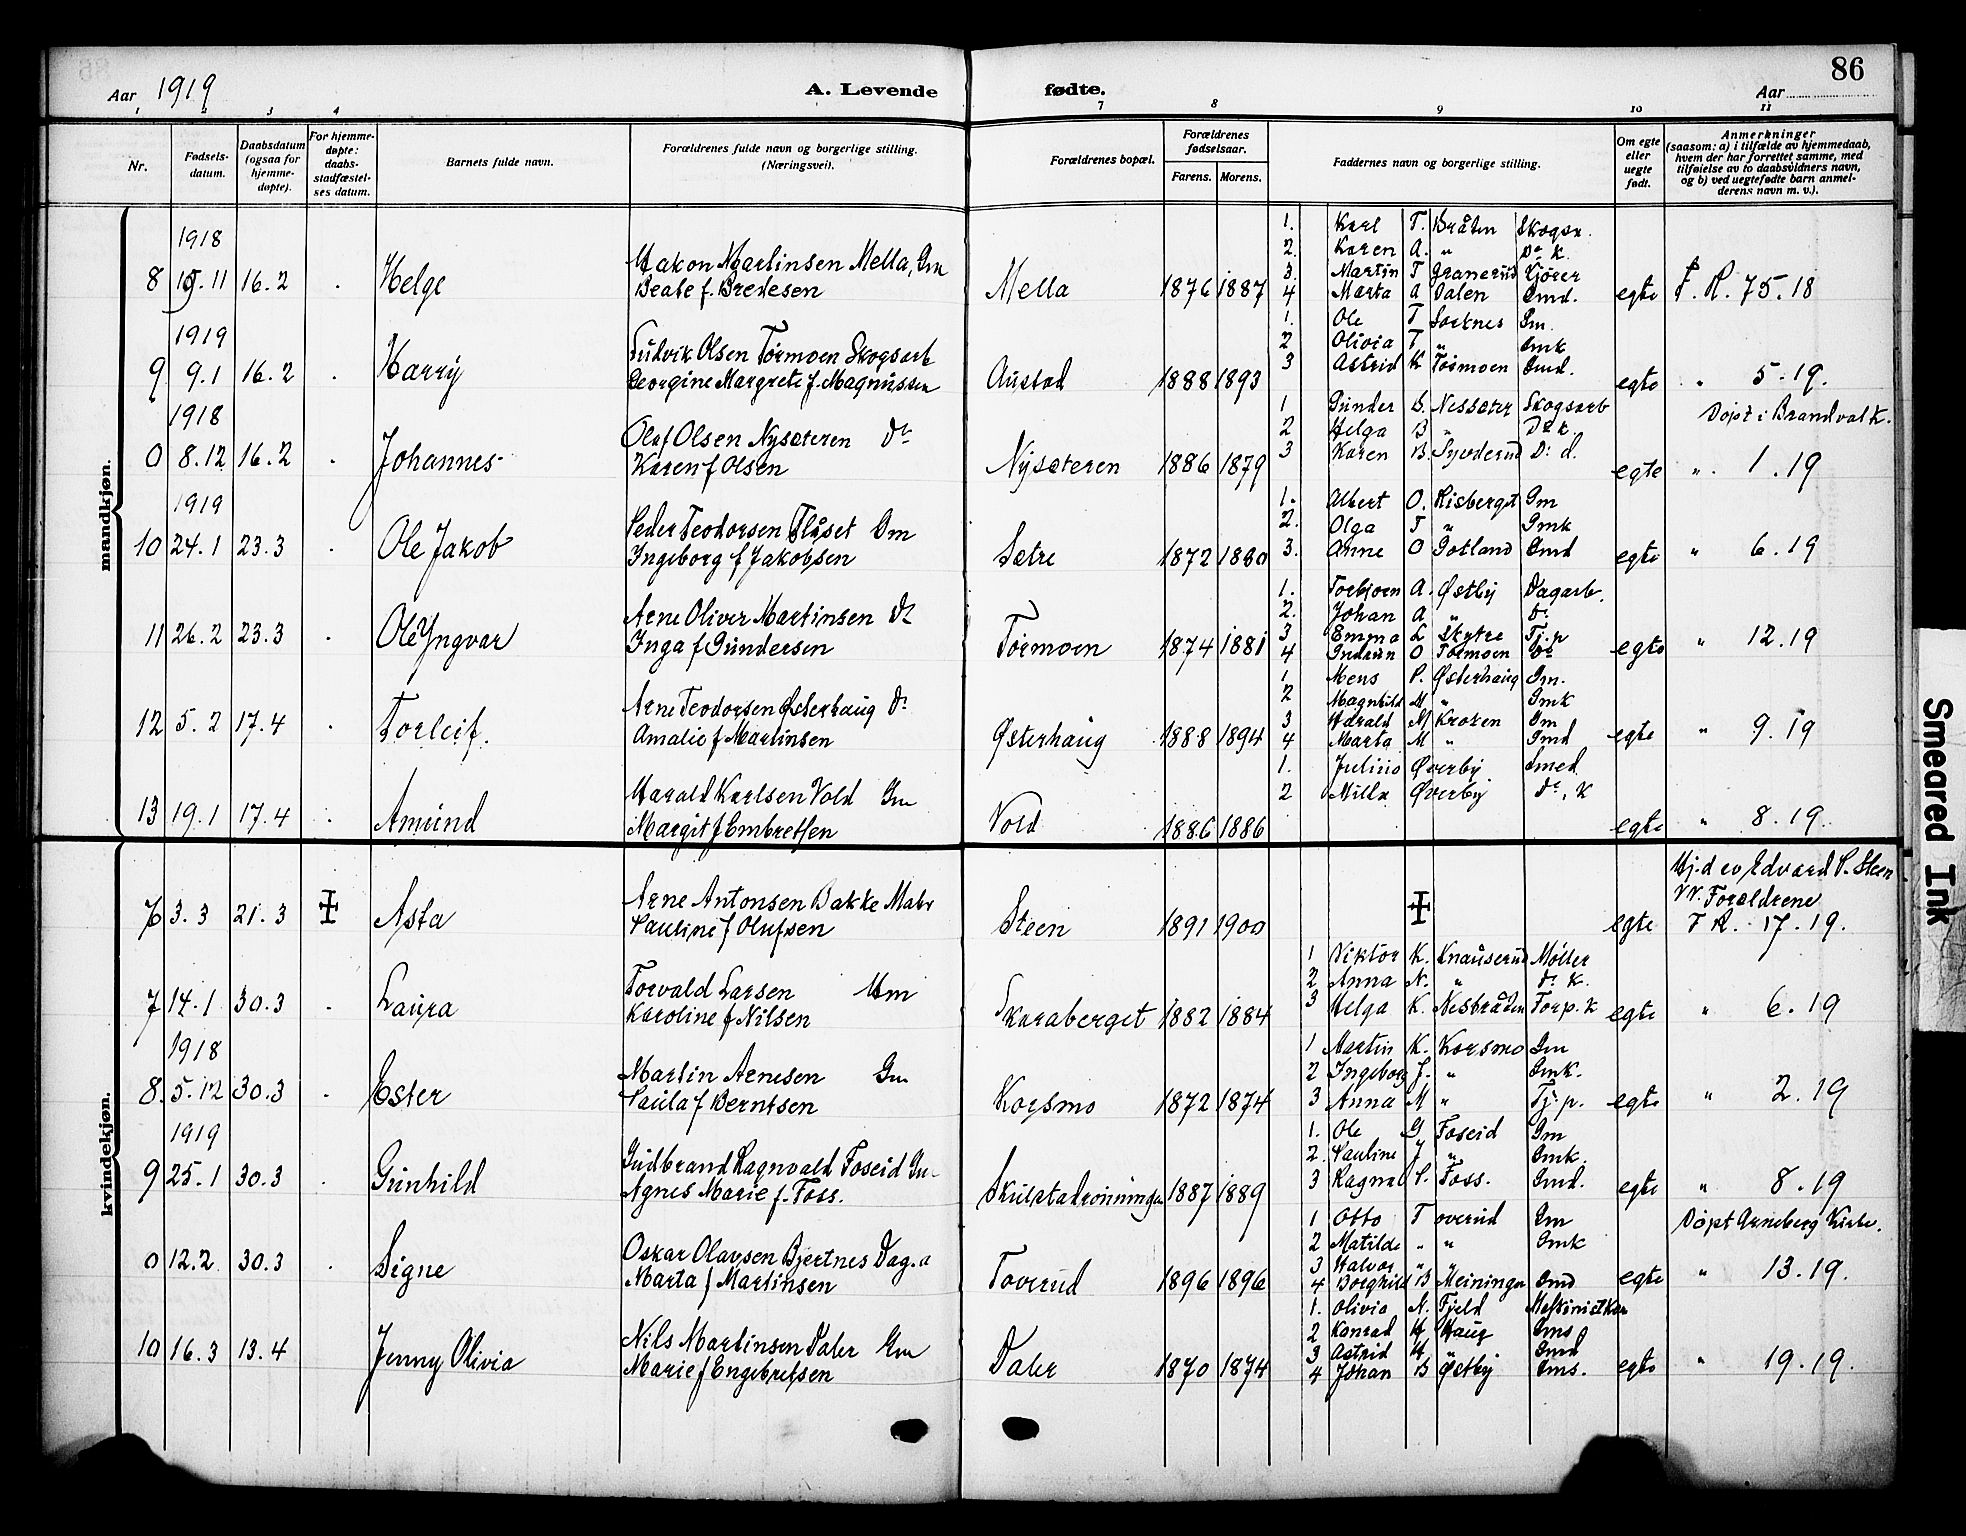 86
Aar 1919
A. Levende fødte.
Aar
1 2 3 4 7 8 9 10 11
Nr.
Fødsels-
datum.
Daabsdatum
(ogsaa for
hjemme-
døpte).
For hjemme-
døpte:
daabs-
stadfæstel-
ses datum.
Barnets fulde navn.
Forældrenes fulde navn og borgerlige stilling.
(Næringsvei).
Forældrenes bopæl.
Forældrenes
fødselsaar.
Farens. Morens.
Faddernes navn og borgerlige stilling.
Om egte
eller
uegte
født.
Anmerkninger
(saasom: a) i tilfælde av hjemmedaab,
hvem der har forrettet samme, med
tilføielse av to daabsvidners navn,
og b) ved uegtefødte barn anmel-
derens navn m. v.).
mandkjøn.
1918
8 15.11 16.2 . Helge
Hakon Martinsen Mella, Gm
Beate f. Bredesen
Mella 1876 1887
1. Karl T. Bråten Skogsa.
2. Karen A. " Do k.
3. Martin T Granerud Kjører
4 Marta A Dalen Gmd.
egte F. R. 75.18
1919
9 9.1 16.2 . Harry
Ludvik Olsen Tørmoen Skogsarb
Georgine Margrete f. Magnussen
Austad 1888 1893
1. Ole T Sorknes Gm.
2 Olivia T " Gmk
3 Astrid K Tørmoen Gmd.
egte " 5.19.
1918
0 8.12 16.2 . Johannes
Olaf Olsen Nysæteren Do
Karen f Olsen
Nysæteren 1886 1879
1 Gunder B. Nessæter Skogsarb
2 Helga B " Do k.
3 Karen B. Syverud Do d.
egte Døpt i Brandval k.
" 1.19
1919
10 24.1 23.3 . Ole Jakob
Peder Teodorsen Flåset Gm
Ingeborg f Jakobsen
Sætre 1872 1880
1. Albert O. Risberget Gm
2. Olga T " Gmk
3. Anne O Gotland Gmd
egte " 6.19
11 26.2 23.3 . Ole Yngvar
Arne Oliver Martinsen Do
Inga f Gundersen
Tørmoen 1874 1881
1. Torbjørn A. Østby Dagarb.
2. Johan A " Do
3 Emma L Skytre Tj.p
4 Gudrun O Tørmoen Do
egte " 12.19
12 5.2 17.4 . Torleif.
Arne Teodorsen Østerhaug Do
Amalie f Martinsen
Østerhaug 1888 1894
1 Mens P. Østerhaug Gm.
2 Magnhild M " Gmk
3 Harald M Kroken Gm
4 Marta M " Gmd
egte " 9.19
13 19.1 17.4 . Amund
Harald Karlsen Vold Gm
Margit f Embretsen
Vold 1886 1886
1. Julius Øverby Smed
2 Milla Øverby Do, K
egte " 8.19.
kvindekjøn.
6 3.3 21.3 ‡ Asta
Arne Antonsen Bakke Mabr
Pauline f Olufsen
Steen 1891 1900
‡
egte Hj.d av Edvard P. Steen
VV. Forældrene
F R. 17.19.
7 14.1 30.3 . Laura
Torvald Larsen Hm
Karoline f Nilsen
Skaraberget 1882 1884
1 Viktor K. Knauserud Møller
2 Anna N. " Do k.
3 Helga K. Nesbråten Forp. k
egte " 6.19
1918
8. 5.12 30.3 . Ester
Martin Arnesen Gm
Paula f Berntsen
Korsmo 1872 1874
1 Martin K. Korsmo Gm
2 Ingeborg J. " Gmk.
3 Anna M " Tj.p.
egte " 2.19
1919
9 25.1 30.3 . Gunhild
Gudbrand Ragnvald Foseid Gm
Agnes Marie f. Foss.
Skulstadrønningen 1887 1889
1. Ole G Foseid Gm
2. Pauline J " Gmk.
3 Ragna P. Foss. Gmd.
egte " 8.19
0 12.2 30.3 . Signe
Oskar Olavsen Bjertnes Dag.a
Marta f Martinsen
Toverud 1896 1896
1 Otto Toverud Gm
2 Matilde " " Gmk
3 Halvor " "
4 Borghild B Meiningen Gmd
egte Døpt Arneberg Kirke.
" 13.19.
10 16.3 13.4 Jenny Olivia
Nils Martinsen Daler Gm
Marie f Engebretsen
Daler 1870 1874
1. Olivia N. Fjeld Maskinistkon
2 Konrad H Haug Gms
3 Astrid H " Gmd
4 Johan B Østby Gms.
egte " 19.19.
Smeared Ink